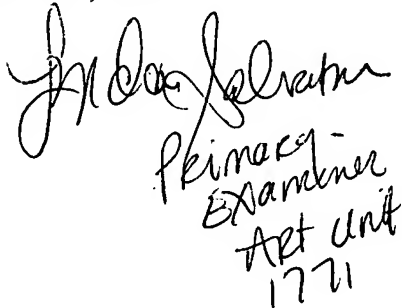 Linda Salvatore
Primary
Examiner
Art Unit
1771